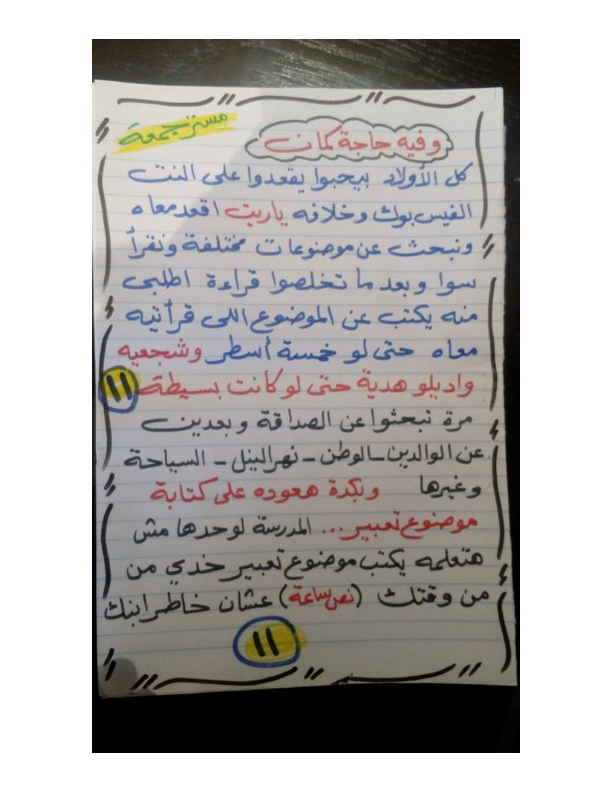 مستر جمعة
وفيه حاجة كمان
كل الأولاد بيحبوا يقعدوا على النت
الفيس بوك وخلافه ياريت اقعد معاه
ونبحث عن موضوعات مختلفة ونقرأ
سوا وبعد ما تخلصوا قراءة اطلبى
منه يكتب عن الموضوع اللى قرأتيه
معاه حتى لو خمسة أسطر وشجعيه
واديلو هدية حتى لو كانت بسيطة 11
مرة تبحثوا عن الصداقة وبعدين
عن الوالدين - الوطن - نهر النيل - السياحة
وغيرها وبكدة هعوده على كتابة
موضوع تعبير... المدرسة لوحدها مش
هتعلمه يكتب موضوع تعبير خدي من
من وقتك (نص ساعة) عشان خاطر ابنك
11